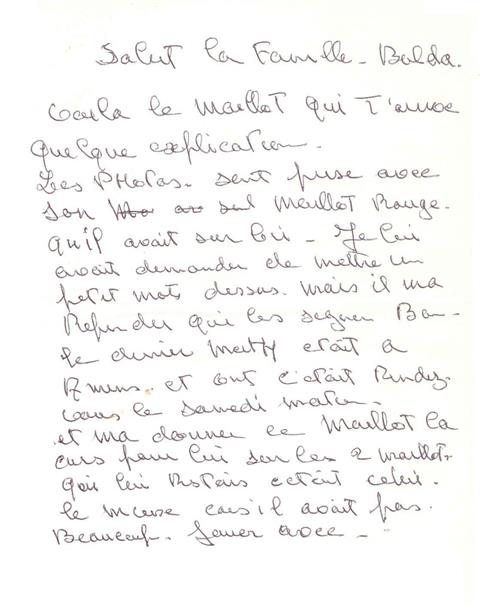 Salut la Famille - Balda.
voila le Maillot qui t'anvoe
quelque explication.
Les Photos. sent prise avec
son seul Maillot Rouge.
qu'il avait sur lui - Je lui
avait demander de mettre un
petit mots dessus. mais il ma
Refonder qui les segner Ban-
le dernier Matty etait a
et ont c'etait Rendez.
vous le samedi matin.
et ma donner ce Maillot la
cars pour lui sur les 2 maillots
qui lui Restais cetait celui.
le mieuse cars il avait pas.
Beaucoup. Jouer avec -